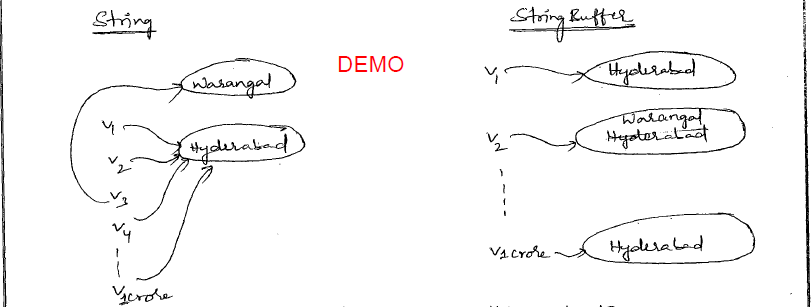 String
Warangal
V1
Hyderabad
V2
V3
V4
V1crore
DEMO
StringBuffer
V1
Hyderabad
V2
Warangal
Hyderabad
V1crore
Hyderabad